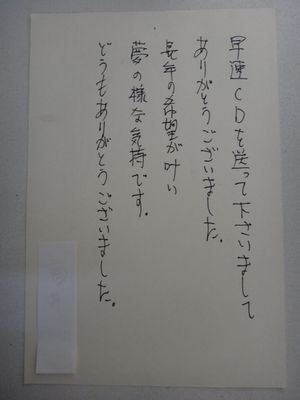 早速CDを送って下さいまして
ありがとうございました。
長年の希望が叶い
夢の様な気持です。
どうもありがとうございました。